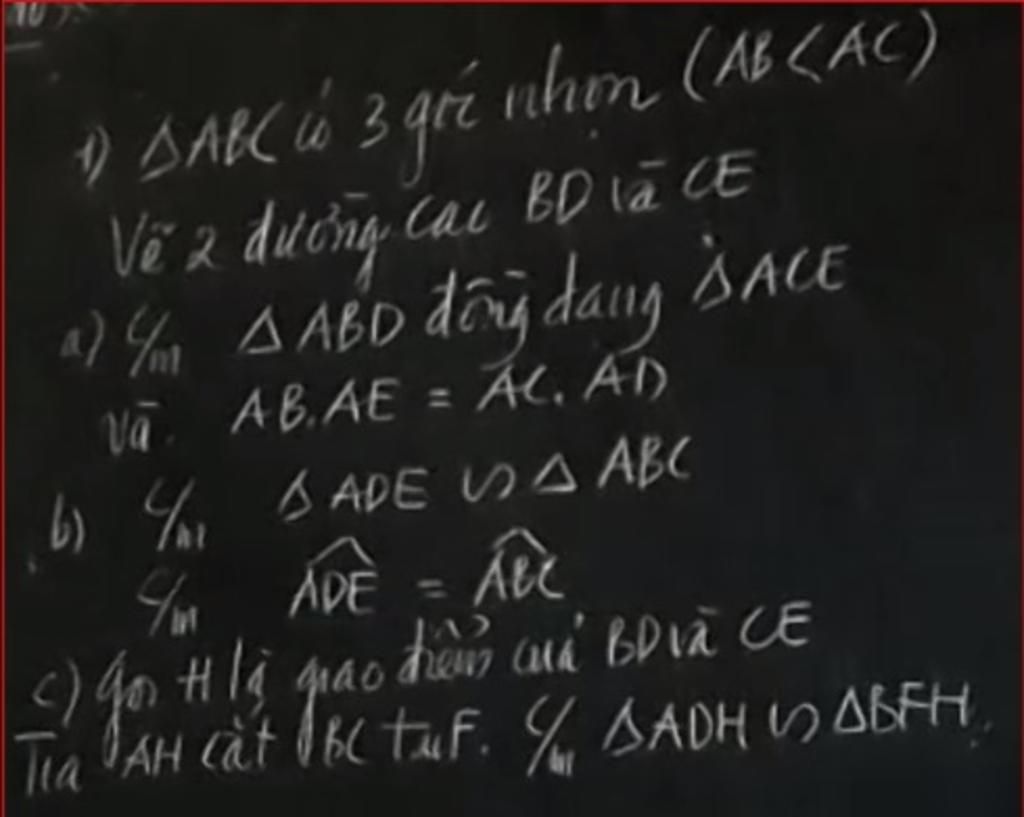 1) ΔABC có 3 góc nhọn (AB < AC)
Vẽ 2 đường cao BD và CE
a) C/m Δ ABD đồng dạng ΔACE
và AB.AE = AC.AD
b) C/m Δ ADE ∽ Δ ABC
C/m \widehat{ADE} = \widehat{ABC}
c) Gọi H là giao điểm của BD và CE
Tia AH cắt BC tại F. C/m ΔADH ∽ ΔBFH.